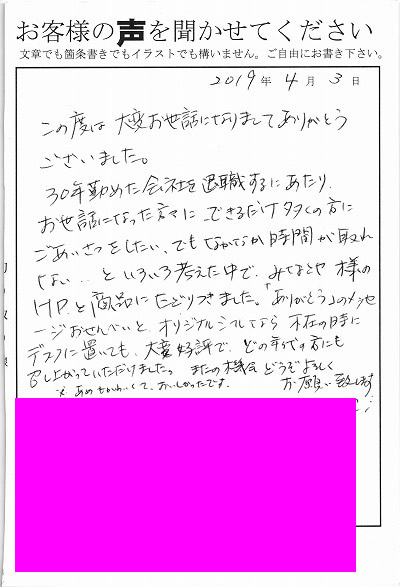 お客様の声を聞かせてください
文章でも箇条書きでもイラストでも構いません。ご自由にお書き下さい。
2019年 4月 3日
この度は 大変お世話になりましてありがとう
ございました。
30年勤めた会社を退職するにあたり、
お世話になった方々に できるだけ多くの方に
ごあいさつをしたい、でもなかなか時間が取れ
ない…といろいろ考えた中で、みなとや様の
HPと商品にたどりつきました。「ありがとう」のメッセ
ージおせんべいと、オリジナルシールなら 不在の時に
デスクに置いても、大変好評で、どの年代の方にも
召し上がっていただけました。またの機会 どうぞよろしく
※あめもかわいくて、おいしかったです。 お願い致します